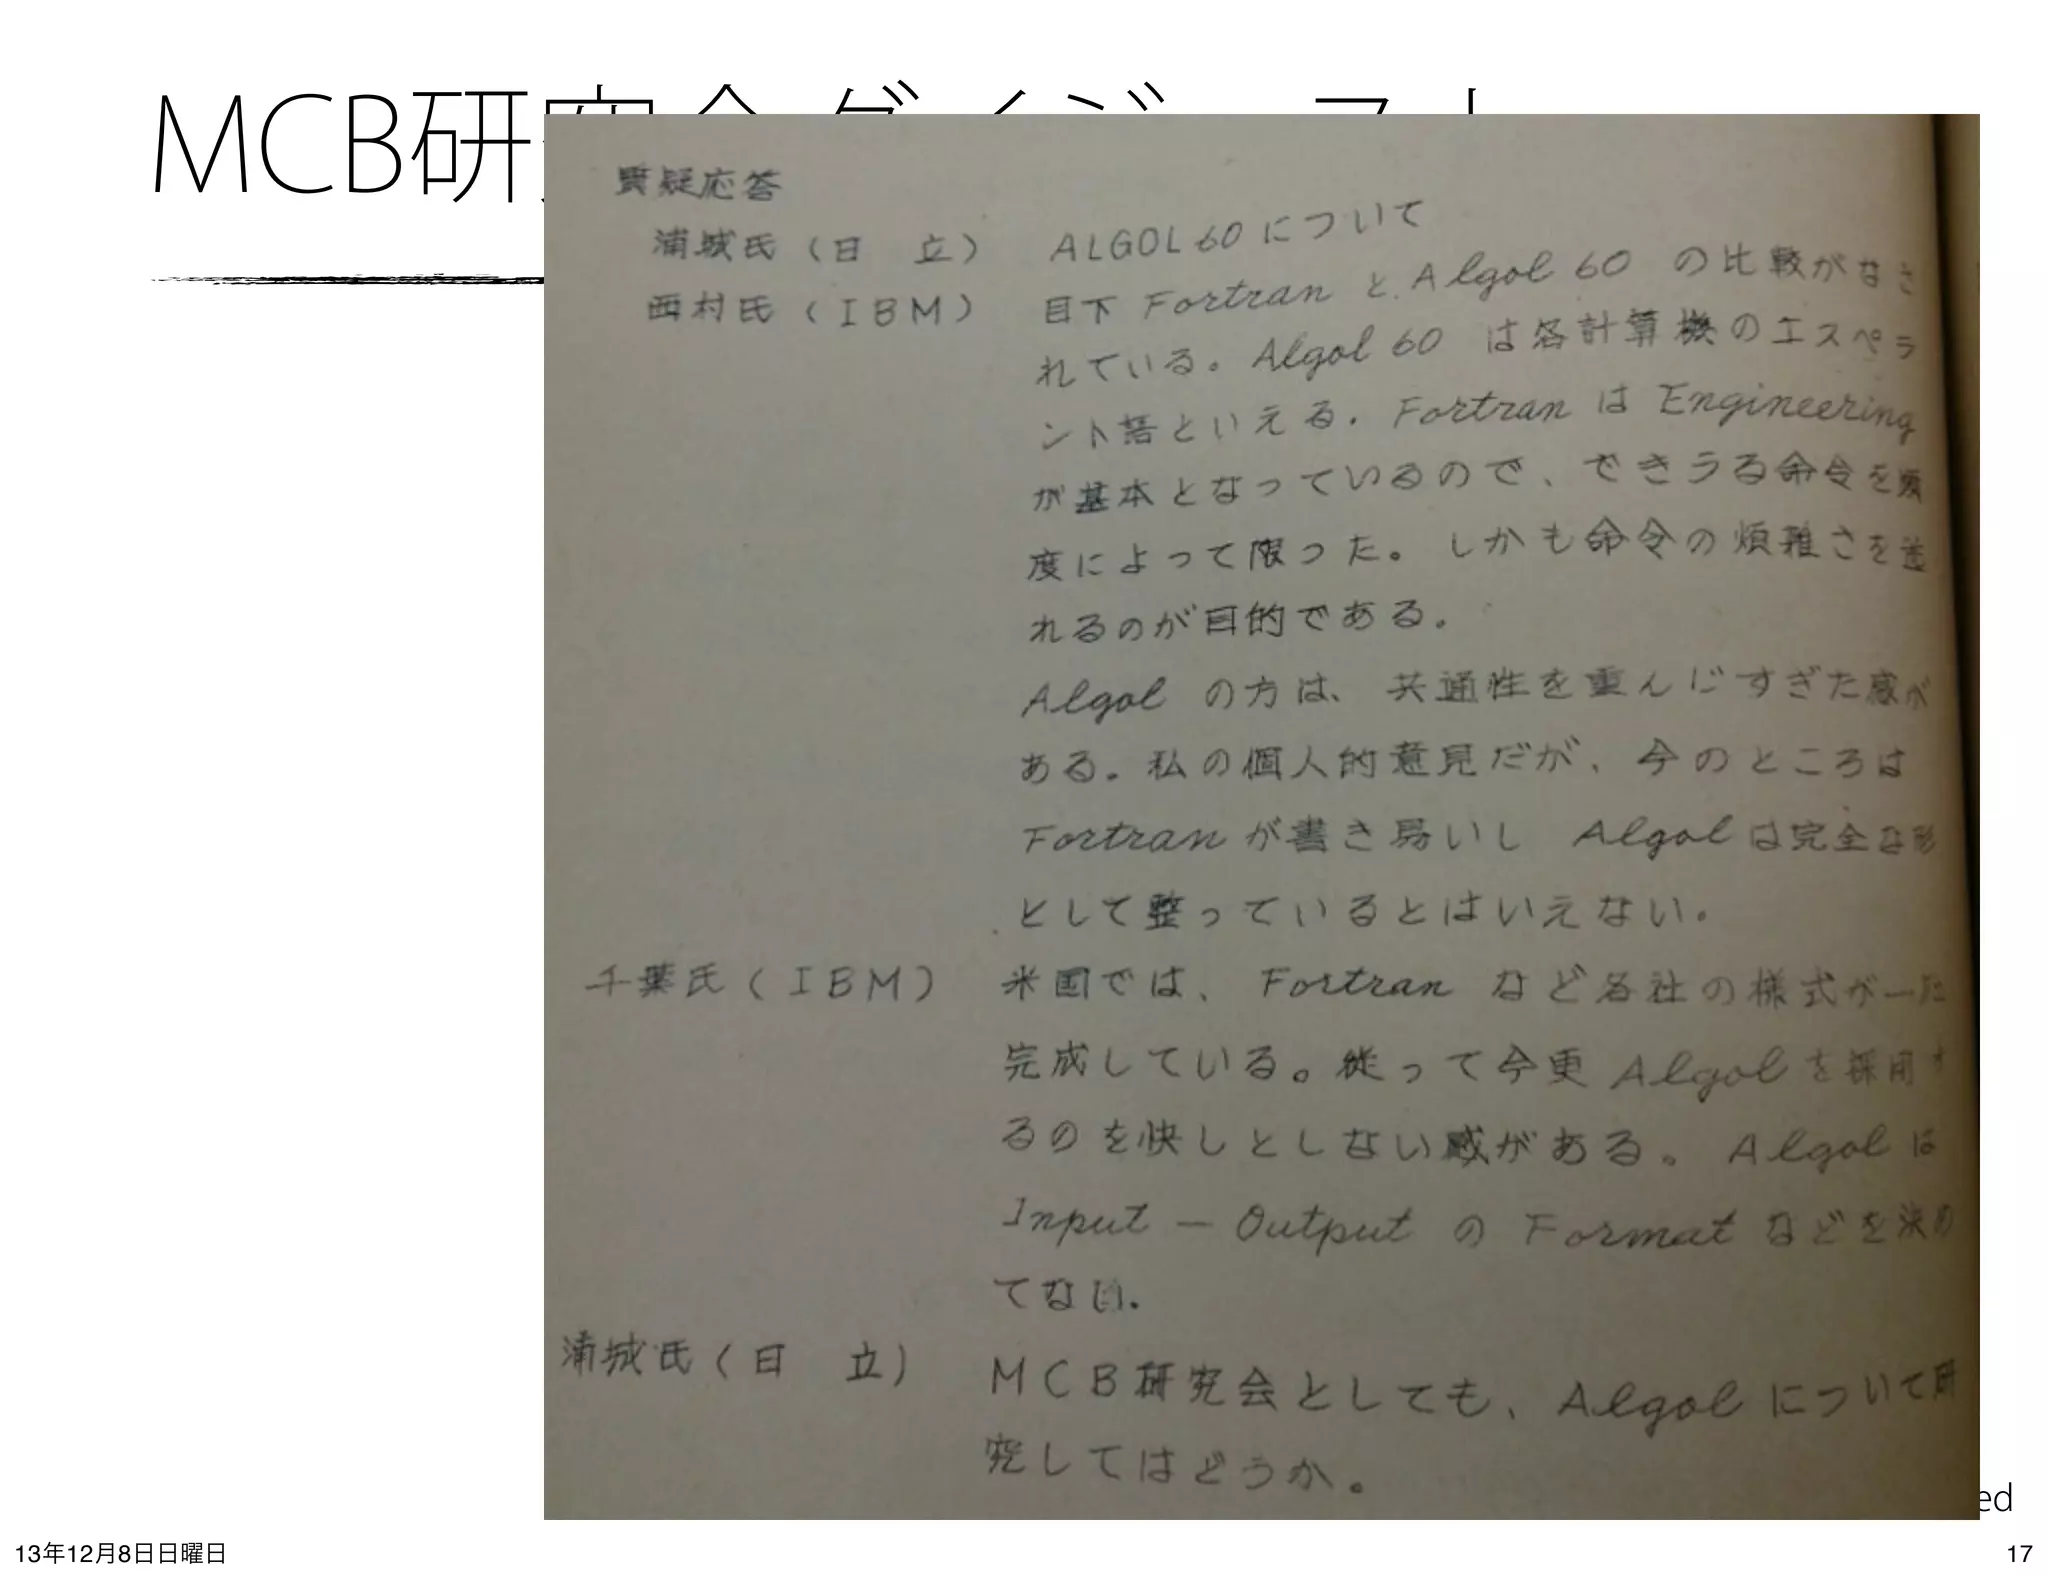 MCB研究会 ダイジェスト
質疑応答
浦城氏(日 立) ALGOL60について
西村氏(IBM) 目下 Fortran と Algol 60 の比較がなさ
れている。Algol 60 は各計算機のエスペラ
ント語といえる. Fortran は Engineering
が基本となっているので、できうる命令を頻
度によって限った。しかも命令の煩雑さを逃
れるのが目的である。
Algol の方は、共通性を重んじすぎた感が
ある。私の個人的意見だが、今のところは
Fortran が書き易いし Algol は完全な形
として整っているとはいえない.
千葉氏(IBM) 米国では、Fortran など各社の様式が一応
完成している。従って今更 Algol を採用す
るのを快しとしない感がある。Algol は
Input — Output の Format などを決め
てない.
浦城氏(日 立) MCB研究会としても、Algol について研
究してはどうか。
ed
13年12月8日日曜日
17